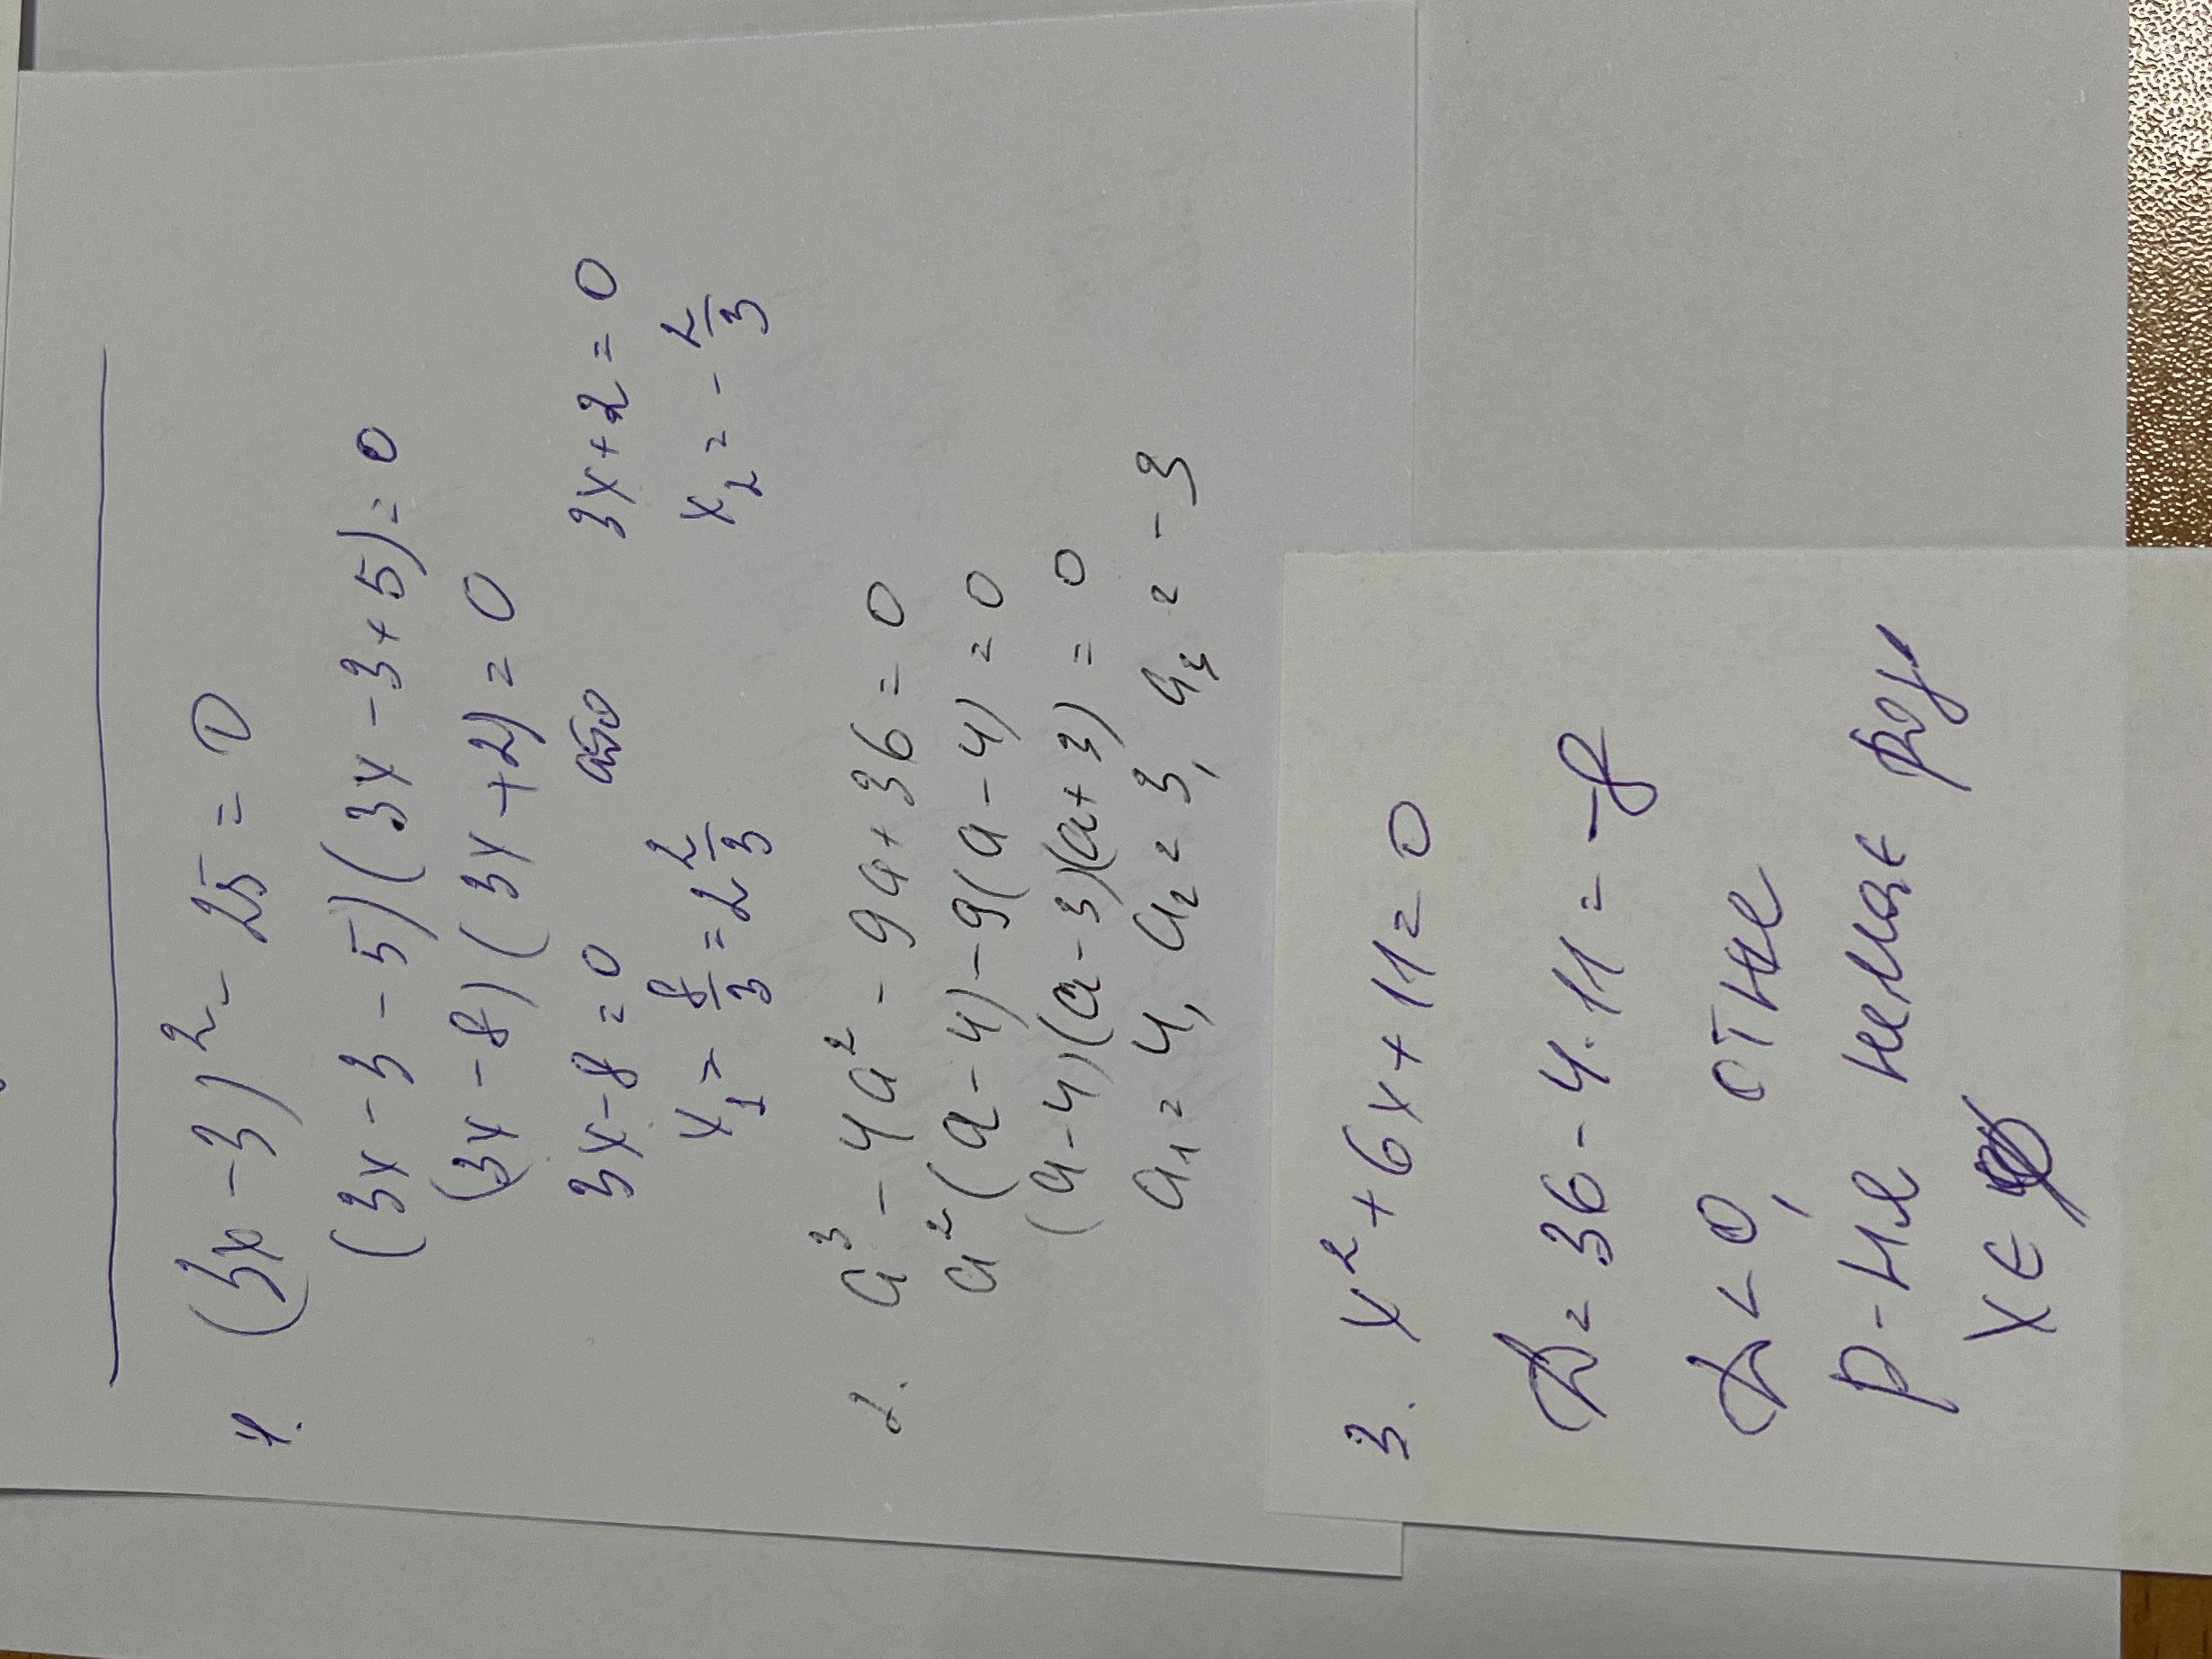 1. (3x-3)² - 25 = 0
(3x-3-5)(3x-3+5)=0
(3x-8)(3x+2)=0
3x-8=0 або 3x+2=0
x₁ = 8/3 = 2 2/3 x₂ = - 2/3
2. a³ - 4a² - 9a + 36 = 0
a²(a-4) - 9(a-4) = 0
(a-4)(a-3)(a+3) = 0
a₁ = 4, a₂ = 3, a₃ = -3
3. x² + 6x + 11 = 0
D = 36 - 4·11 = -8
D < 0, отже
р-ня немає
x ∈ ∅